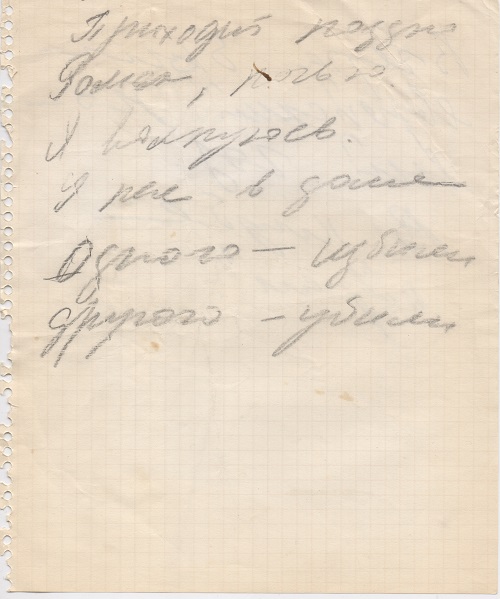 Приходит поздно
Роман, ночью
Я волнуюсь.
Я не в доме
Одного — избили
другого — убили